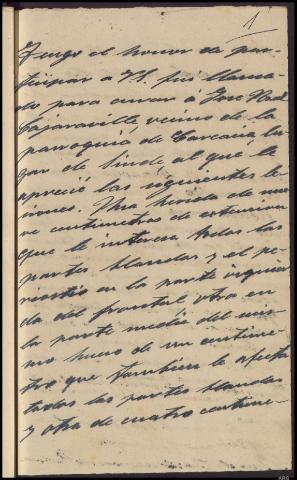 1
Tengo el honor de par-
ticipar a V. S. fuí llama-
do para curar a José Mª
Cajaraville, vecino de la
parroquia de Carcacia, lu-
gar de Lindé, al que le
aprecié las siguientes le-
siones. Una herida de nue-
ve centimetros de extension
que le interesa todas las
partes blandas y el pe-
riostio en la parte izquier-
da del frontal otra en
la parte media del mis-
mo hueso de un centime-
tro que tambien le afecta
todas las partes blandas
y otra de cuatro centime-